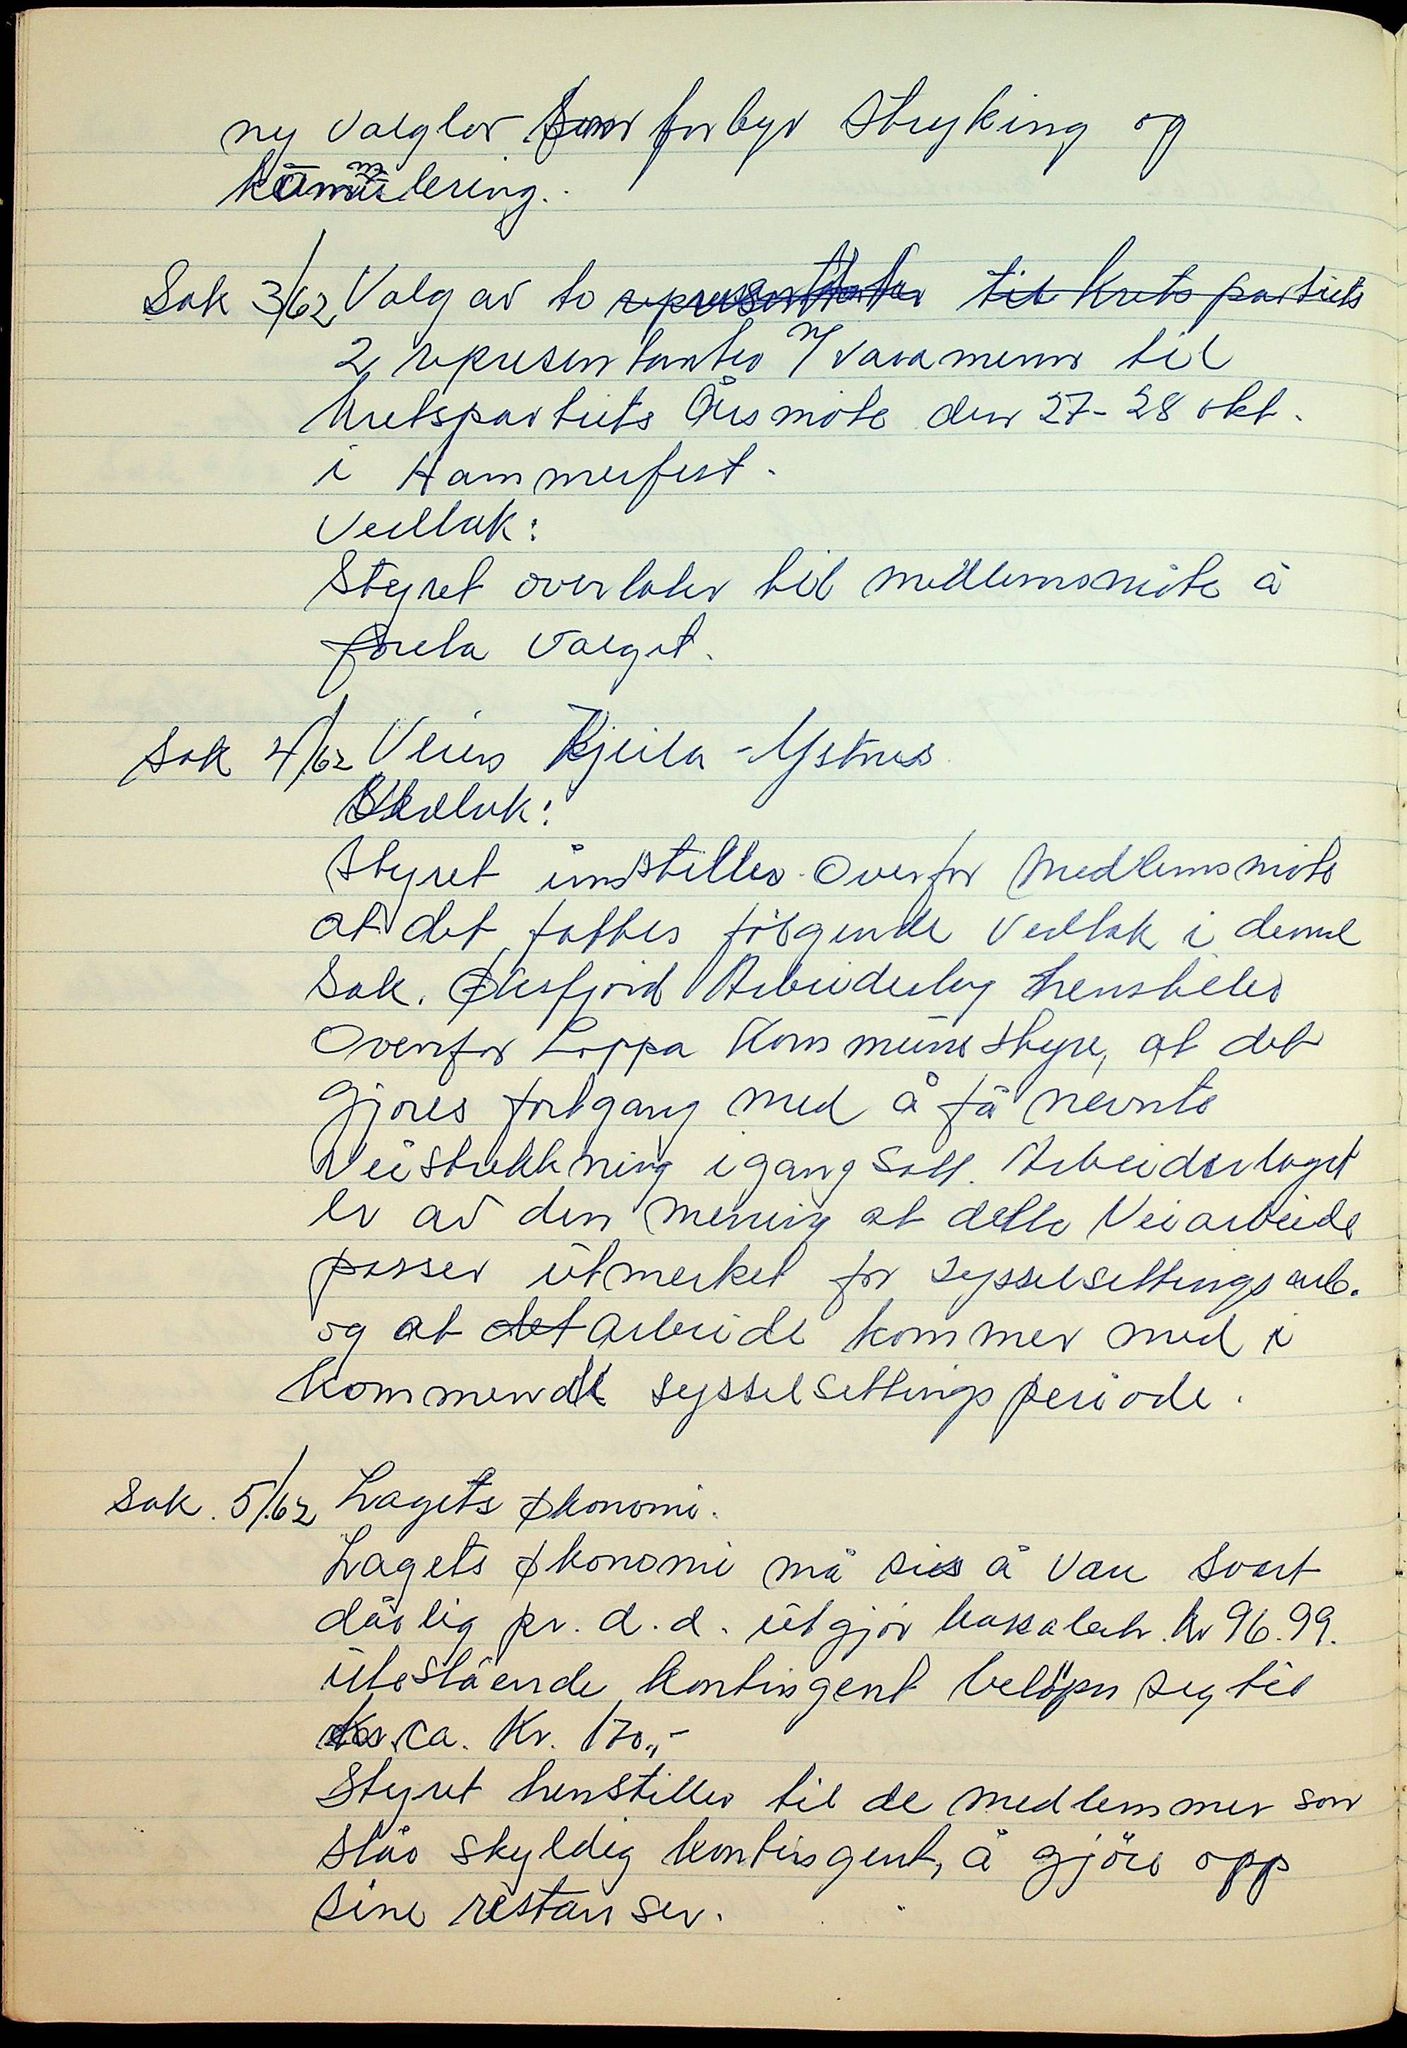 ny valglov som forbyr stryking og
kumulering.
Sak 3/62 Valg av to representanter til Kretspartiets
2 representanter m/varamenn til
Kretspartiets Årsmøte den 27-28 okt.
i Hammerfest.
Vedtak:
Styret overlater til medlemsmøte å
foreta valget.
Sak 4/62 Veien Kjeila - Ystnes
Vedtak:
Styret innstiller overfor Medlemsmøte
at det fattes følgende Vedtak i denne
Sak. Øksfjord Arbeiderlag henstiller
Overfor Loppa Kommunestyre, at det
gjøres fortgang med å få nevnte
Veistrekkning igangsatt. Arbeiderlaget
er av den mening at dette Veiarbeide
passer utmerket for sysselsettingsarb.
og at det arbeide kommer med i
kommende sysselsettingsperiode.
Sak. 5/62 Lagets økonomi.
Lagets økonomi må sies å være svært
dårlig pr. d.d. utgjør kassabeh. Kr 96.99.
Utestående kontingent beløper seg til
ca. Kr. 170,-
Styret henstiller til de medlemmer som
står skyldig kontingent, å gjøre opp
sine restanser.